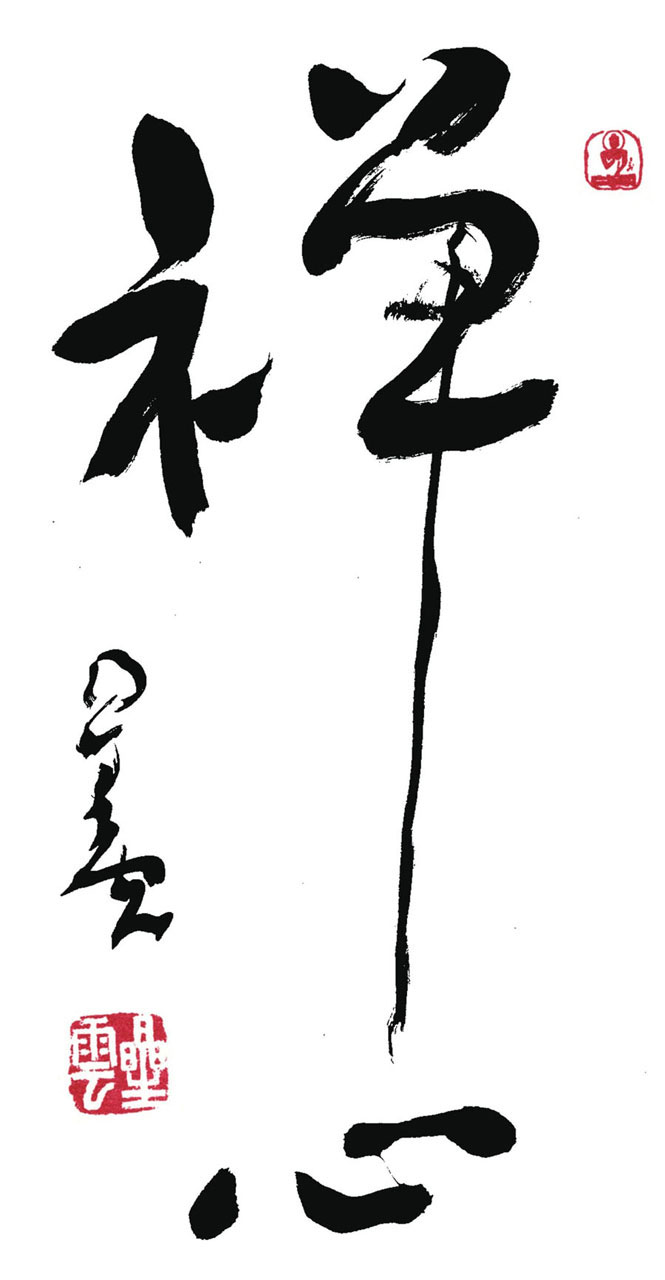 禪心
星雲
星雲